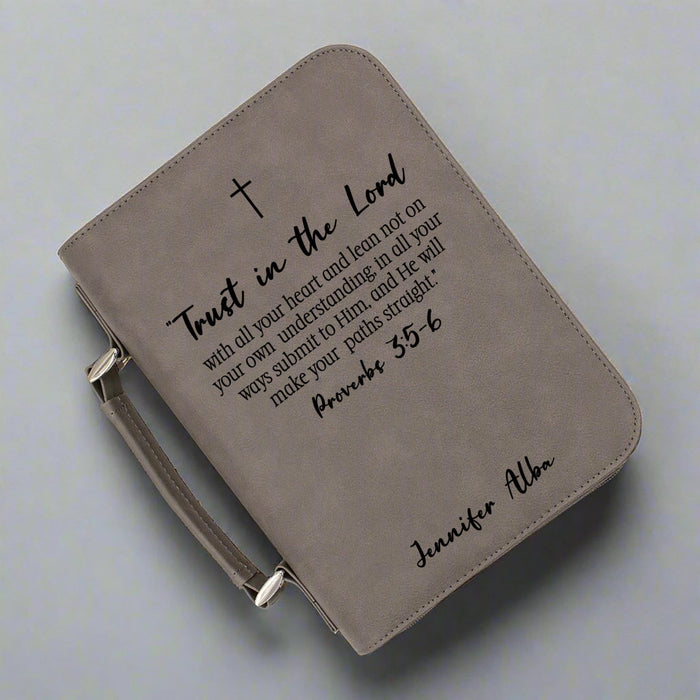 "Trust in the Lord
with all your heart and lean not on
your own understanding; in all your
ways submit to Him, and He will
make your paths straight."
Proverbs 3:5-6
Jennifer Alba